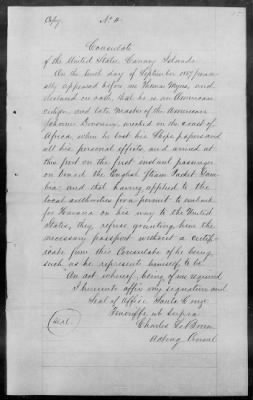 Copy. No 4.
Consulate
of the United States, Canary Islands
On the tenth day of September 1857 person
ally appeared before me Thomas Myers, and
declared on oath, that he is an American
citizen, and late Master of the American
Schooner wrecked on the coast of
Africa, when he lost his Ship's papers and
all his personal effects, and arrived at
this port on the first instant passenger
on board the English Steam Packet Gam
bia: and that having applied to the
local authorities for a permit to embark
for Havana on his way to the United
States, they refuse granting him the
necessary passport without a certifi-
cate from this Consulate of he being
such as he represents himself to be
An act whereof, being of me required
I hereunto affix my signature and
Seal of Office Santa Cruz
Teneriffe ut supra
(Seal.) Charles
Acting Consul